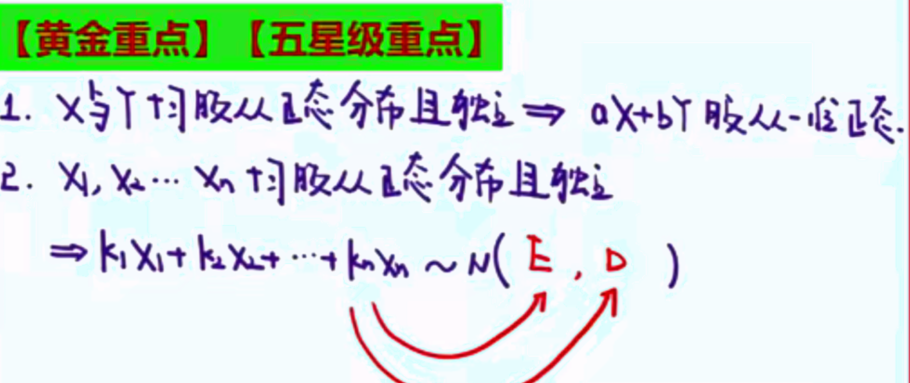 【黄金重点】【五星级重点】
1. X与Y均服从正态分布且独立⇒ aX+bY服从一维正态.
2. X₁, X₂⋯ Xₙ均服从正态分布且独立
⇒k₁X₁+k₂X₂+⋯+kₙXₙ ~ N( E , D )